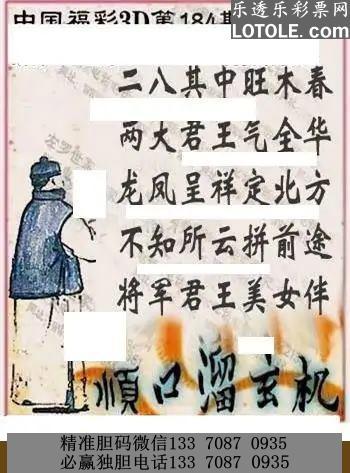 中国福彩3D第184期
乐透乐彩票网
LOTOLE.COM
二八其中旺木春
两大君王气全华
龙凤呈祥定北方
不知所云拼前途
将军君王美女伴
顺口溜玄机
精准胆码微信133 7087 0935
必赢独胆电话133 7087 0935